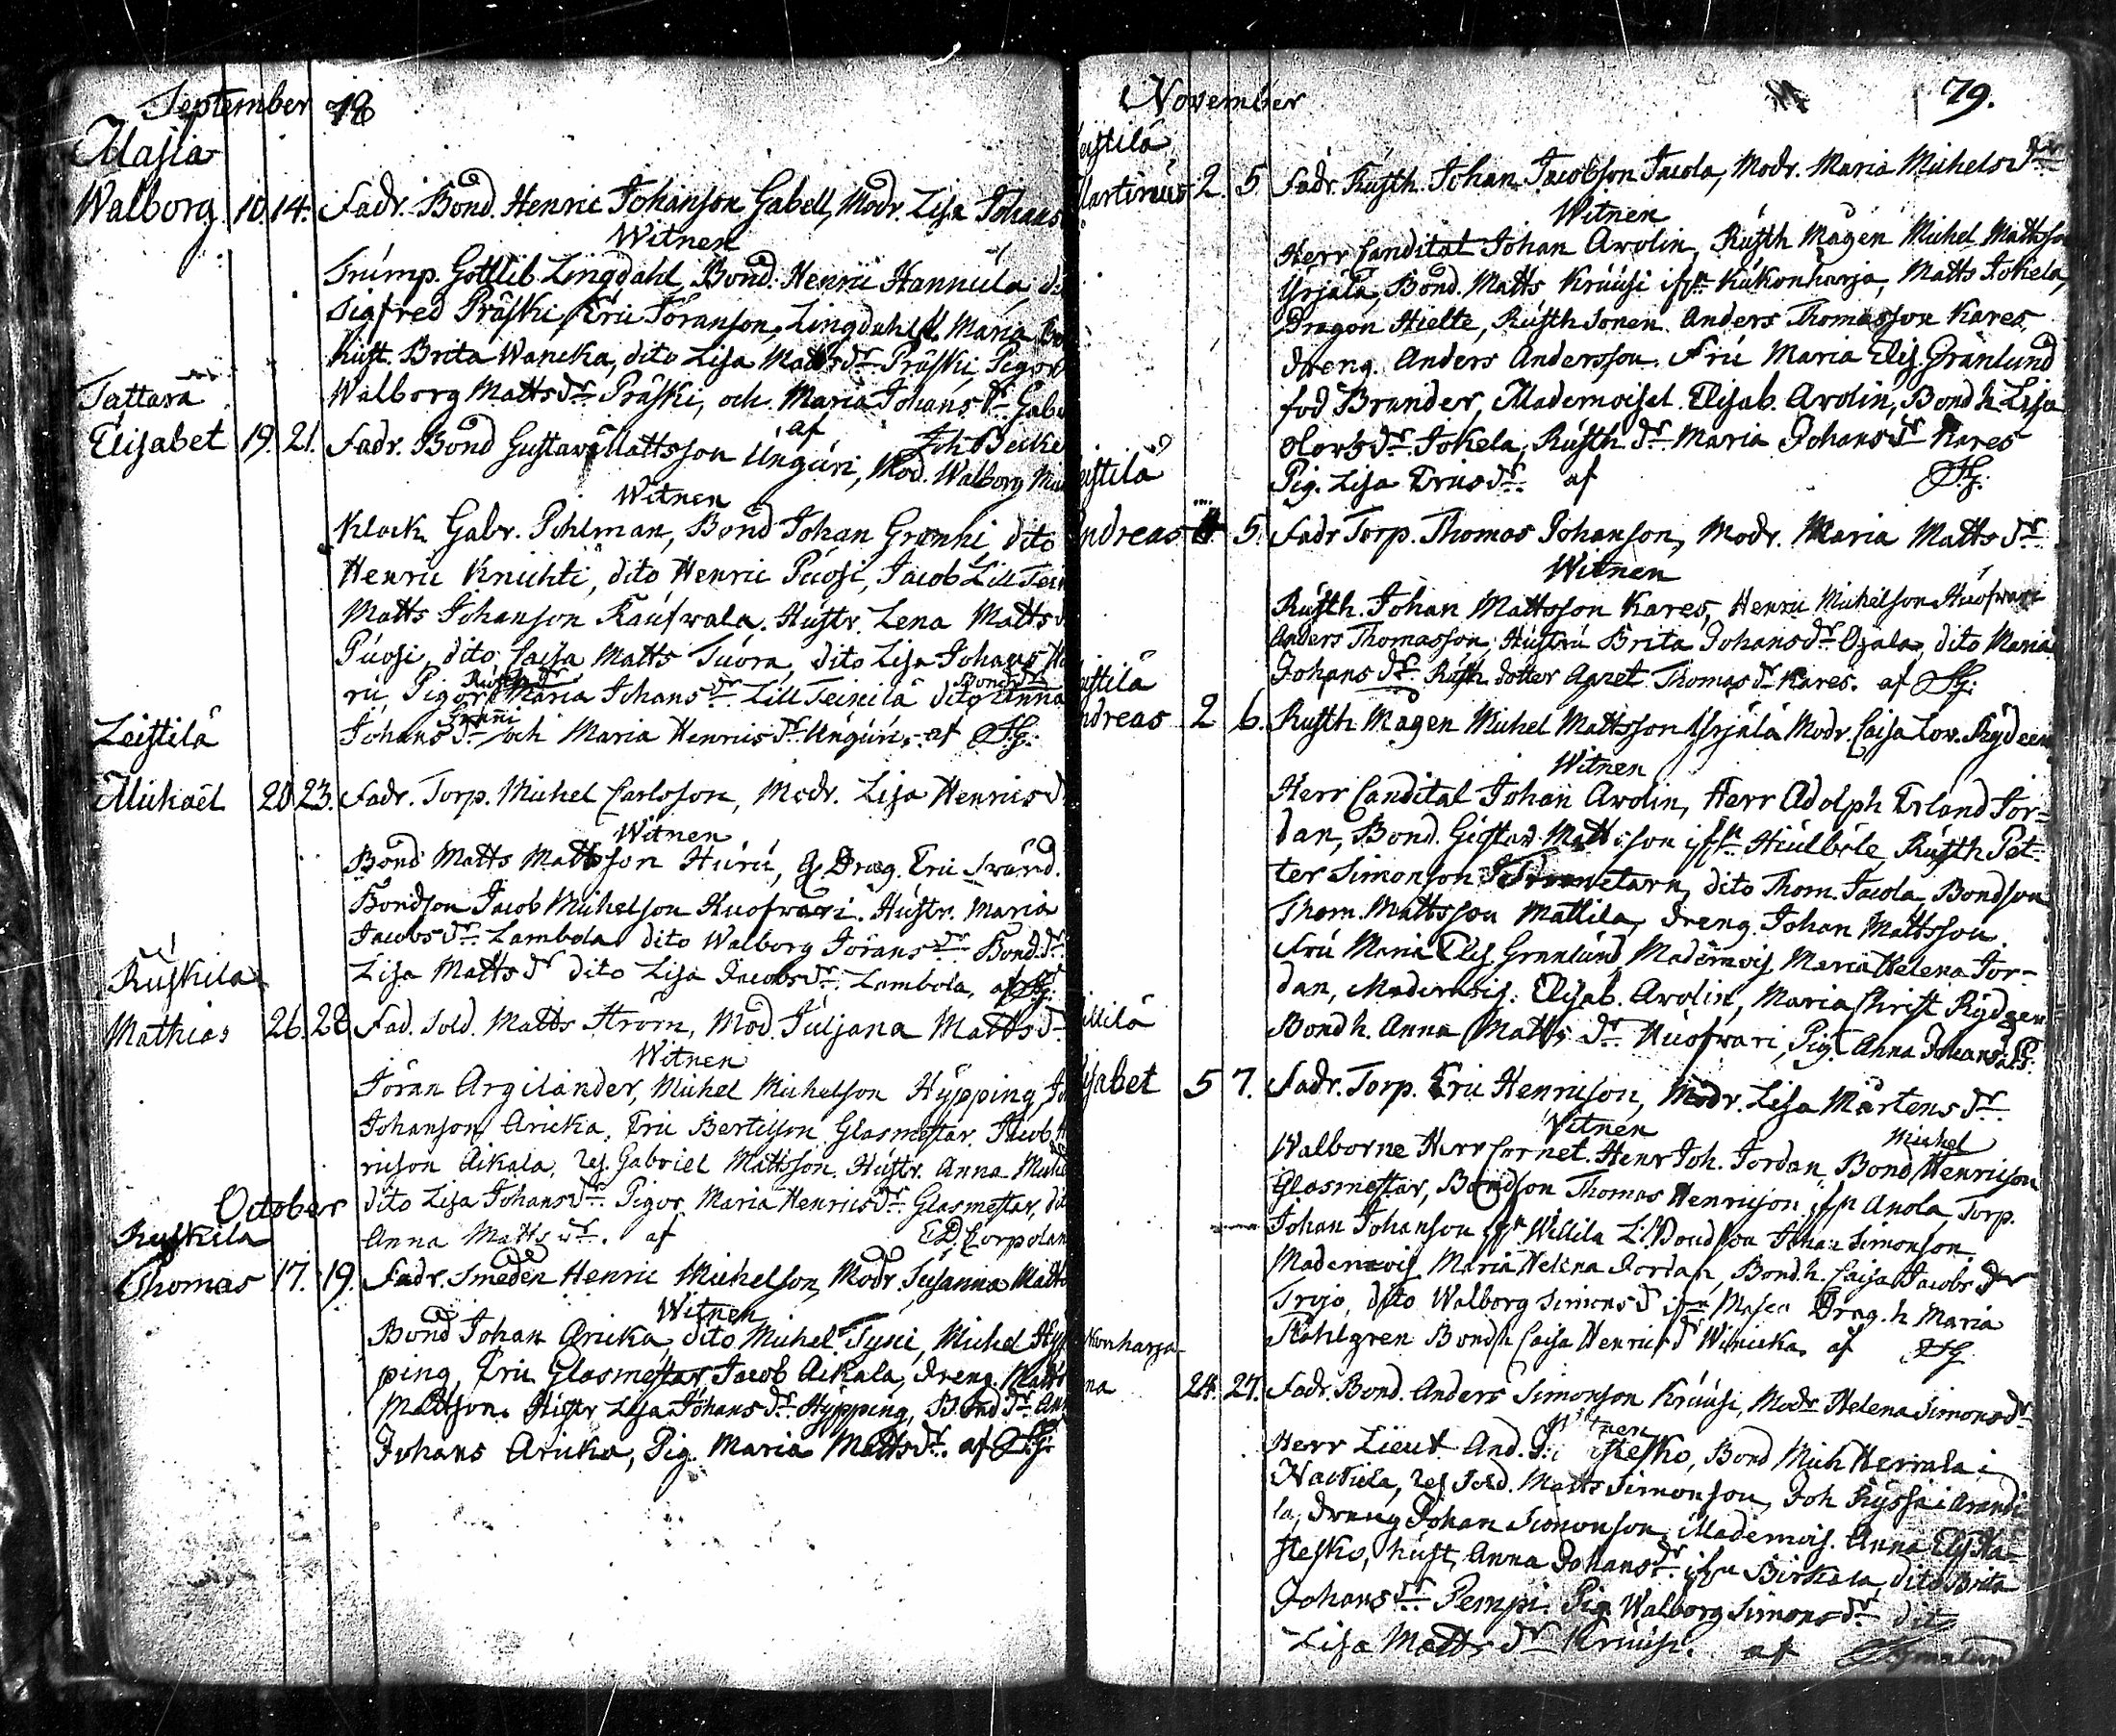 September 78
Masia
Walborg 10. 14. Fadr. Bond. Henric Johanson Gabell, Modr. Lisa Johans
Witnen
Trump. Gottlib Lingdahl, Bond. Henric Hannula,
Sigfred Präski, Eric Jöranson, Lingdahls h. Maria
Hust. Brita Wancka, dito Lisa Matts dr Präski, Pigor
Tattara
Walborg Matts dr Präski, och Maria Johans dr Gab
af Joh Becke
Elisabet 19. 21. Fadr. Bond Gustav Mattsson Unguri, Mod. Walborg
Witnen
Klock. Gabr. Pohlman, Bond Johan Grenki, dito
Henric Knichti, dito Henric Puosi, Jacob Lill Tei
Matts Johanson Kaufwala. Hustr. Lena Matts
Puosi, dito Caisa Matts Tuora, dito Lisa Johans
rü, Pigor Maria Johans dr Lill Teinilä dito Anna
Leistilä
Johans dr och Maria Henrics dr Unguri. af
Michaël 20 23. Fadr. Torp. Michel Carlsson, Modr. Lisa Henrics d
Witnen
Bond Matts Mattsson Huru, G Drag. Eric Swärd.
Bondson Jacob Michelson Huofwari. Hustr. Maria
Jacobs dr Lambola dito Walborg Jörans dr Bond. dr
Ruskila
Lisa Matts dr dito Lisa Jacobs dr Lambola, af
Mathias 26. 28 Fad. Sold. Matts Ström, Mod. Juljana Matts dr
Witnen
Jöran Argilander, Michel Michelson Hypping,
Johanson Aricka, Eric Bertilson Glasmestar, Jacob
ricson Aikala, res. Gabriel Mattsson. Hustr. Anna
dito Lisa Johans dr Pigor Maria Henrics dr Glasmestar,
October
Ruskila
Anna Matts dr. af E.D. Corpolan
Thomas 17. 19. Fadr. Smeden Henric Michelson, Modr. Susanna Matts
Witnen
Bond Johan Aricka, dito Michel Tyni, Michel Hyp
ping, Eric Glasmestar, Jacob Aikala, dreng. Matts
Mattson. Hustr Lisa Johans dr Hypping, Bond dr
Johans Aricka, Pig. Maria Matts dr. af
November 79.
eistilä
Martinus 2. 5 Fadr. Rusth. Johan Jacobson Jacola, Modr. Maria Michels dr
Witnen
Herr Canditat Johan Arolin, Rusth Mågen Michel Mattsso
Yrjälä, Bond. Matts Kruusi ifrn Kukonharja, Matts Jokela,
Dragon Hielte, Rusth Sonen Anders Thomasson Kares
dreng. Anders Andersson. Fru Maria Elis. Granlund
född Brander, Mademoisel. Elisab. Arolin, Bond h. Lisa
Olovs dr Jokela, Rusth. dr Maria Johans dr Kares
eistilä
Pig. Lisa Erics dr. af
ndreas 4 5. Fadr Torp. Thomas Johanson, Modr. Maria Matts dr
Witnen
Rusth. Johan Mattsson Kares, Henric Michelson Huofwari
Anders Thomasson, Hustru Brita Johans dr Ojala, dito Maria
eistilä
Johans dr Rusth dotter Agnet Thomas dr Kares. af
ndreas 2 6. Rusth Mågen Michel Mattsson Yrjälä Modr. Caisa Lov. Rydeen
Witnen
Herr Canditat Johan Arolin, Herr Adolph Erland Jor-
dan, Bond. Gustav Mattsson ifrn Hiulböle, Rusth Pet-
ter Simonson dito Thom. Jacola, Bondson
Thom. Mattsson Mattila, Dreng Johan Mattsson.
Fru Maria Elis. Granlund Mademois Maria Helena Jor-
dan, Mademois. Elisab. Arolin, Maria Christ Rydgen
Willilä
Bond h. Anna Matts dr Huofwari, Pig. Anna Johans dr
isabet 5 7. Fadr. Torp. Eric Henricson, Modr. Lisa Mårtens dr
Witnen
Walborne Herr Cornet. Henr Joh. Jordan, Bond Michel Henricson
Glasmestar, Bondson Thomas Henricson ifrn Anola, Torp.
Johan Johanson ifrn Willila L. Bondson Johan Simonson
Mademois Maria Helena Jordan, Bond. h. Caisa Jacobs dr
Trojo, dito Walborg Simons dr ifrn Masia Drag. h Maria
konharja
Stohlgren Bond h Caisa Henrics dr Winicka. af
na 24. 27. Fadr. Bond. Anders Simonson Kruusi, Modr Helena Simons dr
Witnen
Herr Lieut And. Stesko, Bond Mich Herrala i
Nackila, res Sold. Matts Simonson, Joh Ryssä i Arandi
la, dreng Johan Simonson. Mademois. Anna Elis
Stesko, hust. Anna Johans dr ifrn Birkala, dito Brita
Johans dr Pempi. Pig. Walborg Simons dr dito
Lisa Matts dr Kruusi. af